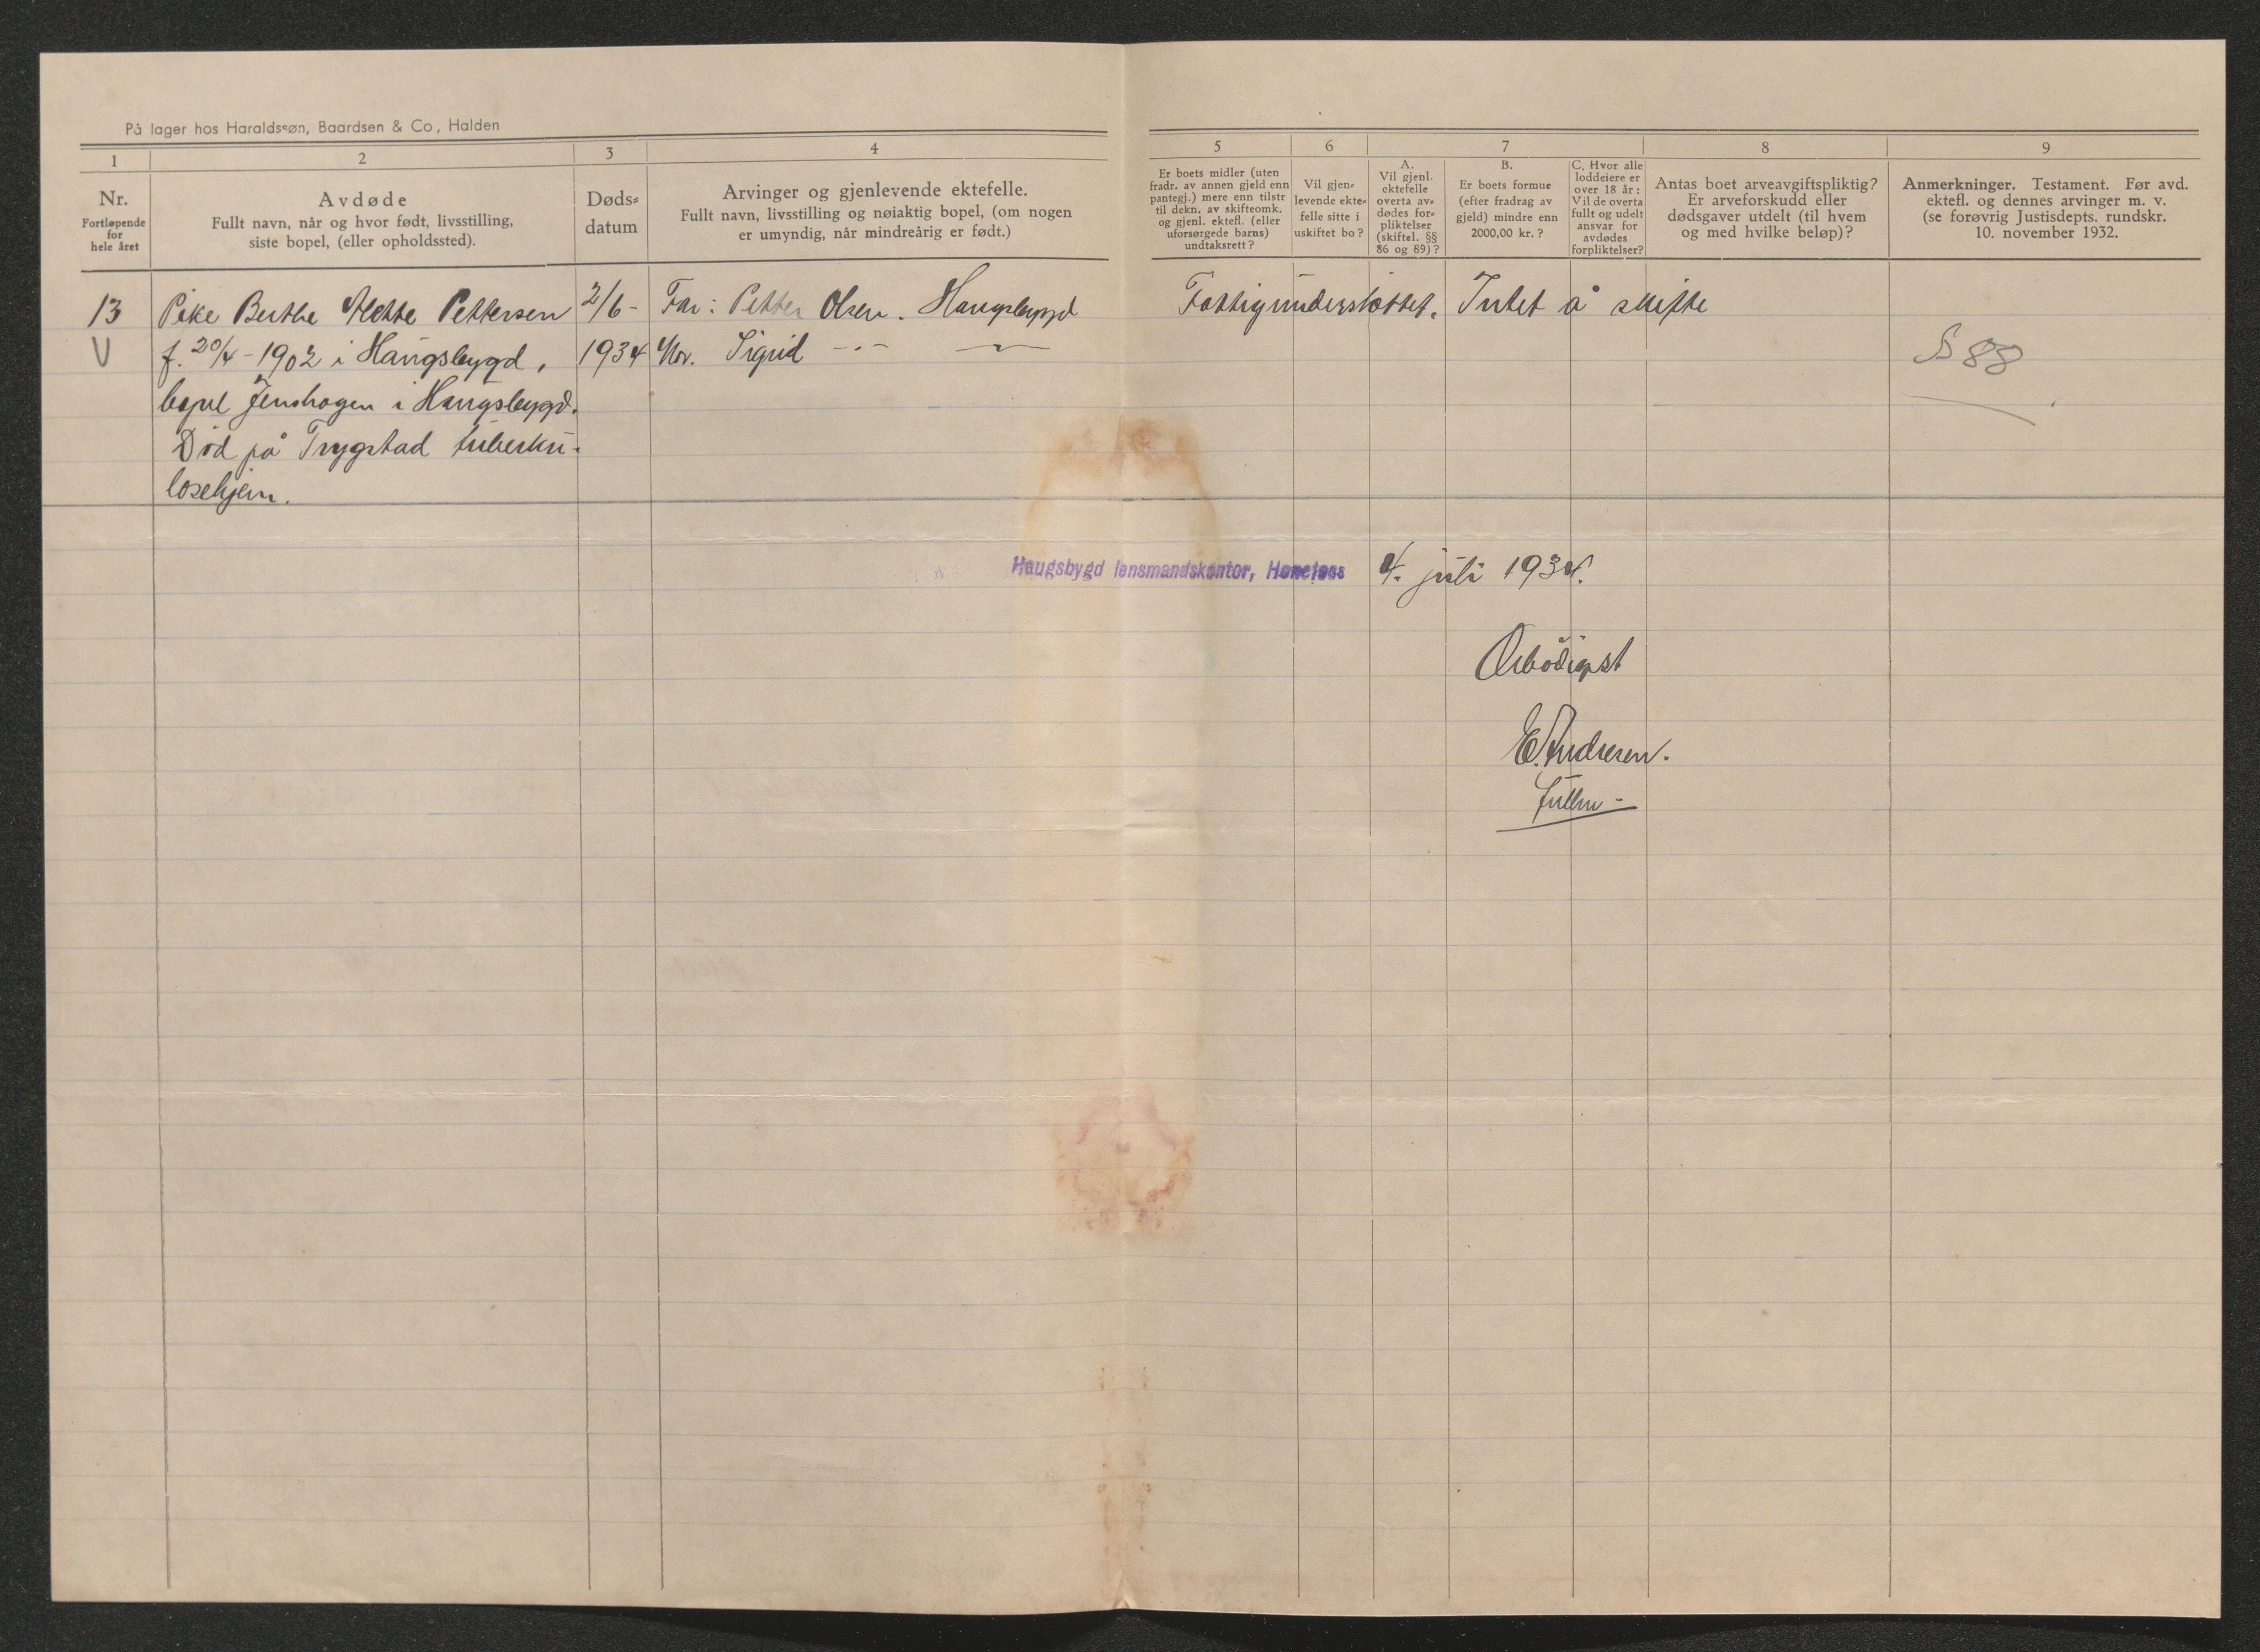 På lager hos Haraldssøn, Baardsen & Co, Halden
1 2 3 4 5 6 7 8 9
Nr.
Fortløpende
for
hele året
Avdøde
Fullt navn, når og hvor født, livsstilling,
siste bopel, (eller opholdssted).
Døds-
datum
Arvinger og gjenlevende ektefelle.
Fullt navn, livsstilling og nøiaktig bopel, (om nogen
er umyndig, når mindreårig er født.)
Er boets midler (uten
fradr. av annen gjeld enn
pantegj.) mere enn tilstr
til dekn. av skifteomk.
og gjenl. ektefl. (eller
uforsørgede barns)
undtaksrett?
Vil gjen-
levende ekte-
felle sitte i
uskiftet bo?
A.
Vil gjenl.
ektefelle
overta av-
dødes for-
pliktelser
(skiftel. §§
86 og 89)?
B.
Er boets formue
(efter fradrag av
gjeld) mindre enn
2000,00 kr.?
C. Hvor alle
loddeiere er
over 18 år:
Vil de overta
fullt og udelt
ansvar for
avdødes
forpliktelser?
Antas boet arveavgiftspliktig?
Er arveforskudd eller
dødsgaver utdelt (til hvem
og med hvilke beløp)?
Anmerkninger. Testament. Før avd.
ektefl. og dennes arvinger m. v.
(se forøvrig Justisdepts. rundskr.
10. november 1932.
13 Pike Berthe Alette Pettersen 2/6- Far: Petter Olsen. Haugsbygd Fattigunderstøttet. Intet å skifte
V f. 20/4-1902 i Haugsbygd, 1934 Mor. Sigrid -"- -"- S 88
bopel Jenshagen i Haugsbygd.
Død på Trygstad tuberku-
losehjem.
Haugsbygd lensmandskontor, Hønefoss 4. juli 1934.
Ærbødigst
E. Andresen.
fullm-